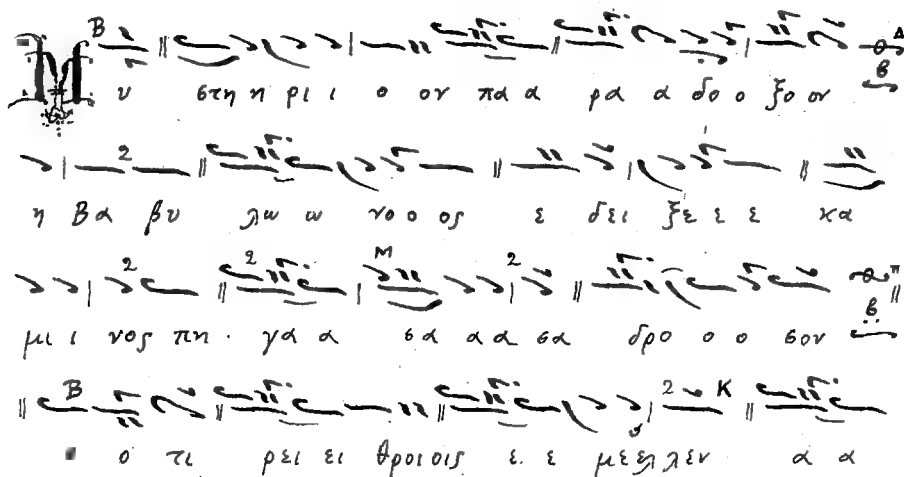 Μ υ στη η ρι ι ο ον πα α ρα α δο ο ξο ον
η Βα βυ λω ω νο ο ος ε δει ξε ε ε κα
μι ι νος πη γα α σα α α σα δρο ο ο σον
ο τι ρει ει θροι οις ε ε με ελ λεν α α